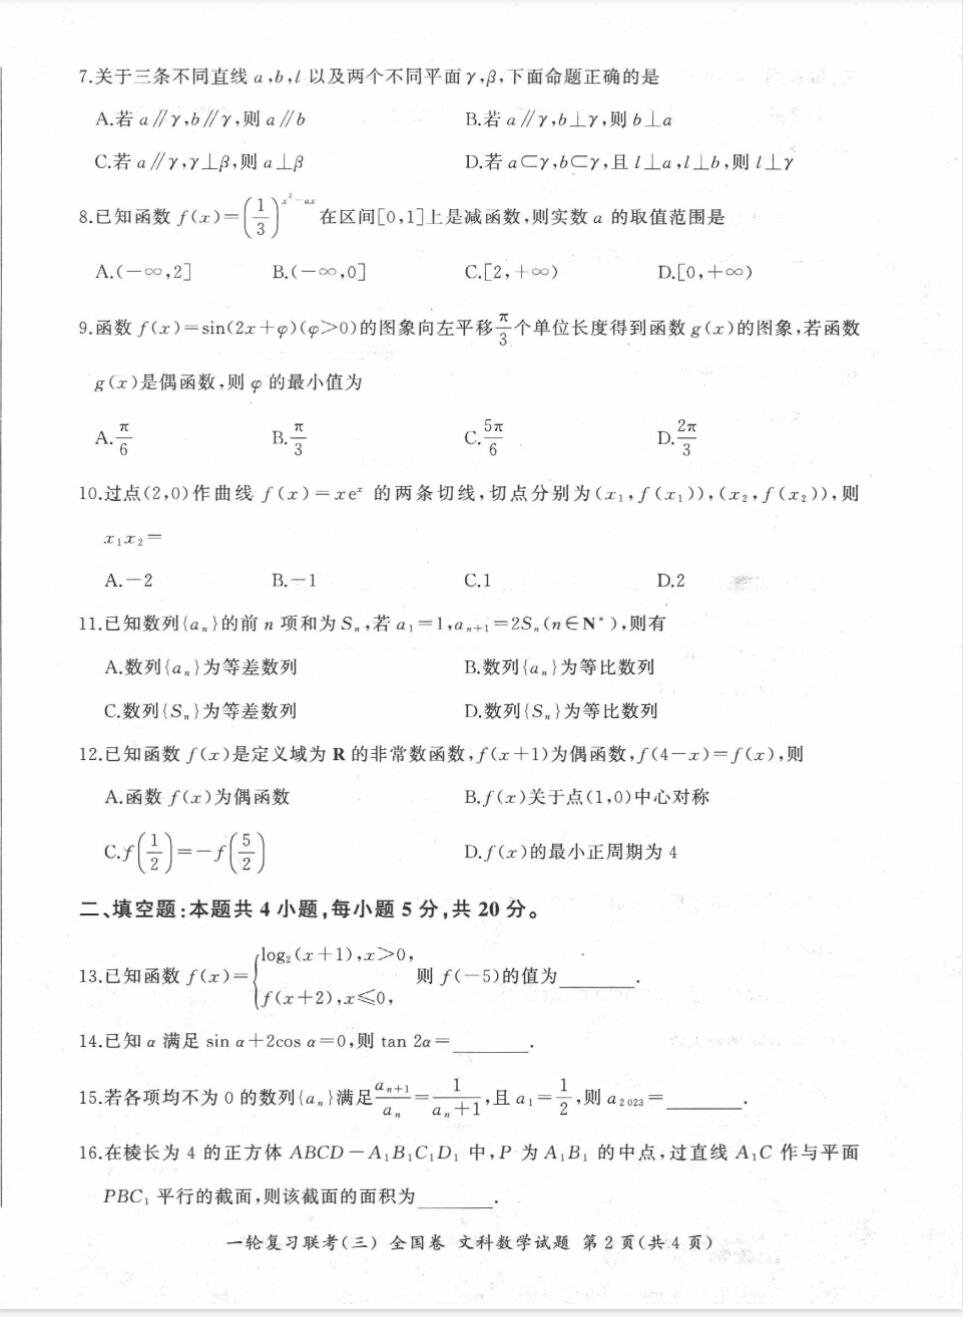 7.关于三条不同直线 a,b,l 以及两个不同平面 γ,β,下面命题正确的是
A.若 a∥γ,b∥γ,则 a∥b　B.若 a∥γ,b⊥γ,则 b⊥a
C.若 a∥γ,γ⊥β,则 a⊥β　D.若 a⊂γ,b⊂γ,且 l⊥a,l⊥b,则 l⊥γ
8.已知函数 f(x)=(1/3)^(x²-ax) 在区间[0,1]上是减函数,则实数 a 的取值范围是
A.(-∞,2]　B.(-∞,0]　C.[2,+∞)　D.[0,+∞)
9.函数 f(x)=sin(2x+φ)(φ>0)的图象向左平移 π/3 个单位长度得到函数 g(x)的图象,若函数
g(x)是偶函数,则 φ 的最小值为
A.π/6　B.π/3　C.5π/6　D.2π/3
10.过点(2,0)作曲线 f(x)=xeˣ 的两条切线,切点分别为(x₁,f(x₁)),(x₂,f(x₂)),则
x₁x₂=
A.-2　B.-1　C.1　D.2
11.已知数列{aₙ}的前 n 项和为 Sₙ,若 a₁=1,aₙ₊₁=2Sₙ(n∈N*),则有
A.数列{aₙ}为等差数列　B.数列{aₙ}为等比数列
C.数列{Sₙ}为等差数列　D.数列{Sₙ}为等比数列
12.已知函数 f(x)是定义域为 R 的非常数函数,f(x+1)为偶函数,f(4-x)=f(x),则
A.函数 f(x)为偶函数　B.f(x)关于点(1,0)中心对称
C.f(1/2)=-f(5/2)　D.f(x)的最小正周期为 4
二、填空题:本题共 4 小题,每小题 5 分,共 20 分。
13.已知函数 f(x)={log₂(x+1),x>0, f(x+2),x≤0, 则 f(-5)的值为______.
14.已知 α 满足 sin α+2cos α=0,则 tan 2α=______.
15.若各项均不为 0 的数列{aₙ}满足 aₙ₊₁/aₙ=1/(aₙ+1),且 a₁=1/2,则 a₂₀₂₃=______.
16.在棱长为 4 的正方体 ABCD-A₁B₁C₁D₁ 中,P 为 A₁B₁ 的中点,过直线 A₁C 作与平面
PBC₁ 平行的截面,则该截面的面积为______.
一轮复习联考(三) 全国卷 文科数学试题 第 2 页(共 4 页)